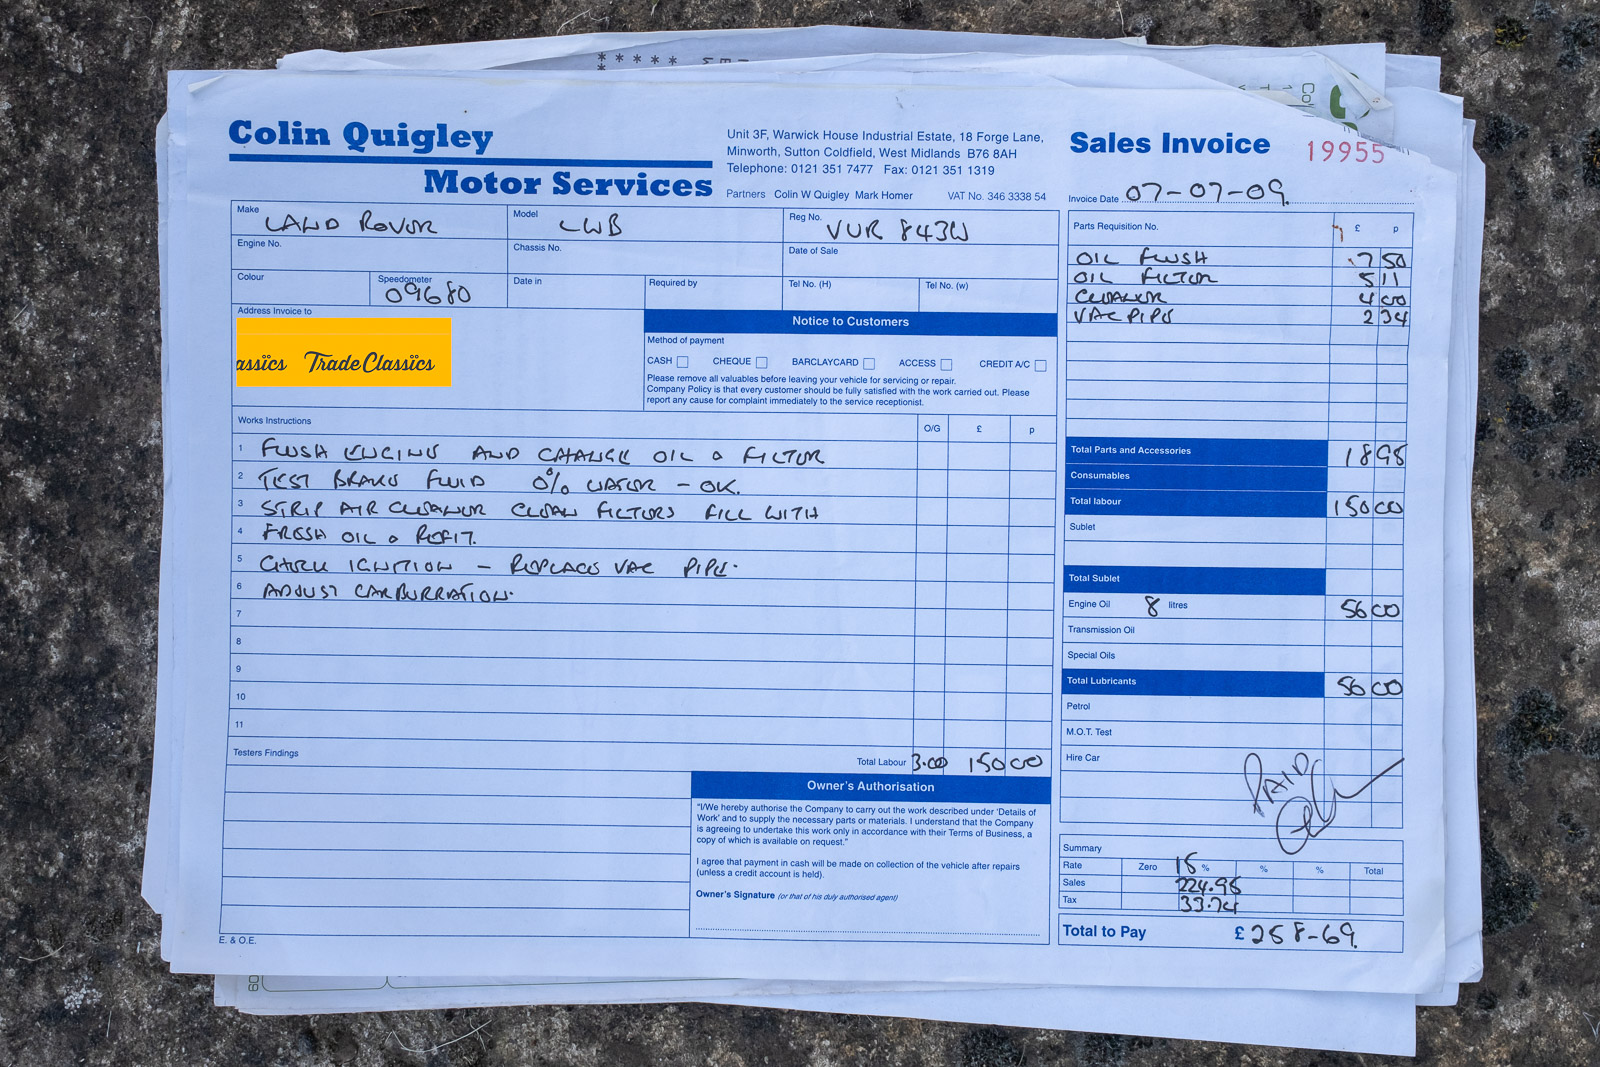 Colin Quigley
Motor Services
Unit 3F, Warwick House Industrial Estate, 18 Forge Lane,
Minworth, Sutton Coldfield, West Midlands B76 8AH
Telephone: 0121 351 7477 Fax: 0121 351 1319
Partners Colin W Quigley Mark Homer VAT No. 346 3338 54
Sales Invoice 19955
Invoice Date 07-07-09.
Make LAND ROVER
Model LWB
Reg No. VUR 843W
Engine No.
Chassis No.
Date of Sale
Colour
Speedometer 09680
Date in
Required by
Tel No. (H)
Tel No. (w)
Address Invoice to
assics TradeClassics
Notice to Customers
Method of payment
CASH CHEQUE BARCLAYCARD ACCESS CREDIT A/C
Please remove all valuables before leaving your vehicle for servicing or repair.
Company Policy is that every customer should be fully satisfied with the work carried out. Please
report any cause for complaint immediately to the service receptionist.
Works Instructions O/G £ p
1 FLUSH ENGINE AND CHANGE OIL & FILTER
2 TEST BRAKE FLUID 0% WATER - OK.
3 STRIP AIR CLEANER CLEAN FILTERS FILL WITH
4 FRESH OIL & REFIT.
5 CHECK IGNITION - REPLACE VAC PIPE.
6 ADJUST CARBURRATION.
7
8
9
10
11
Testers Findings
Total Labour 3.00 150 00
Owner's Authorisation
"I/We hereby authorise the Company to carry out the work described under 'Details of
Work' and to supply the necessary parts or materials. I understand that the Company
is agreeing to undertake this work only in accordance with their Terms of Business, a
copy of which is available on request."
I agree that payment in cash will be made on collection of the vehicle after repairs
(unless a credit account is held).
Owner's Signature (or that of his duly authorised agent)
E. & O.E.
Parts Requisition No. £ p
OIL FLUSH 7 50
OIL FILTER 5 11
CLEANER 4 00
VAC PIPE 2 34
Total Parts and Accessories 18 95
Consumables
Total labour 150 00
Sublet
Total Sublet
Engine Oil 8 litres 56 00
Transmission Oil
Special Oils
Total Lubricants 56 00
Petrol
M.O.T. Test
Hire Car
PAID
Summary
Rate Zero 15 % % % Total
Sales 224.95
Tax 33.74
Total to Pay £258-69.